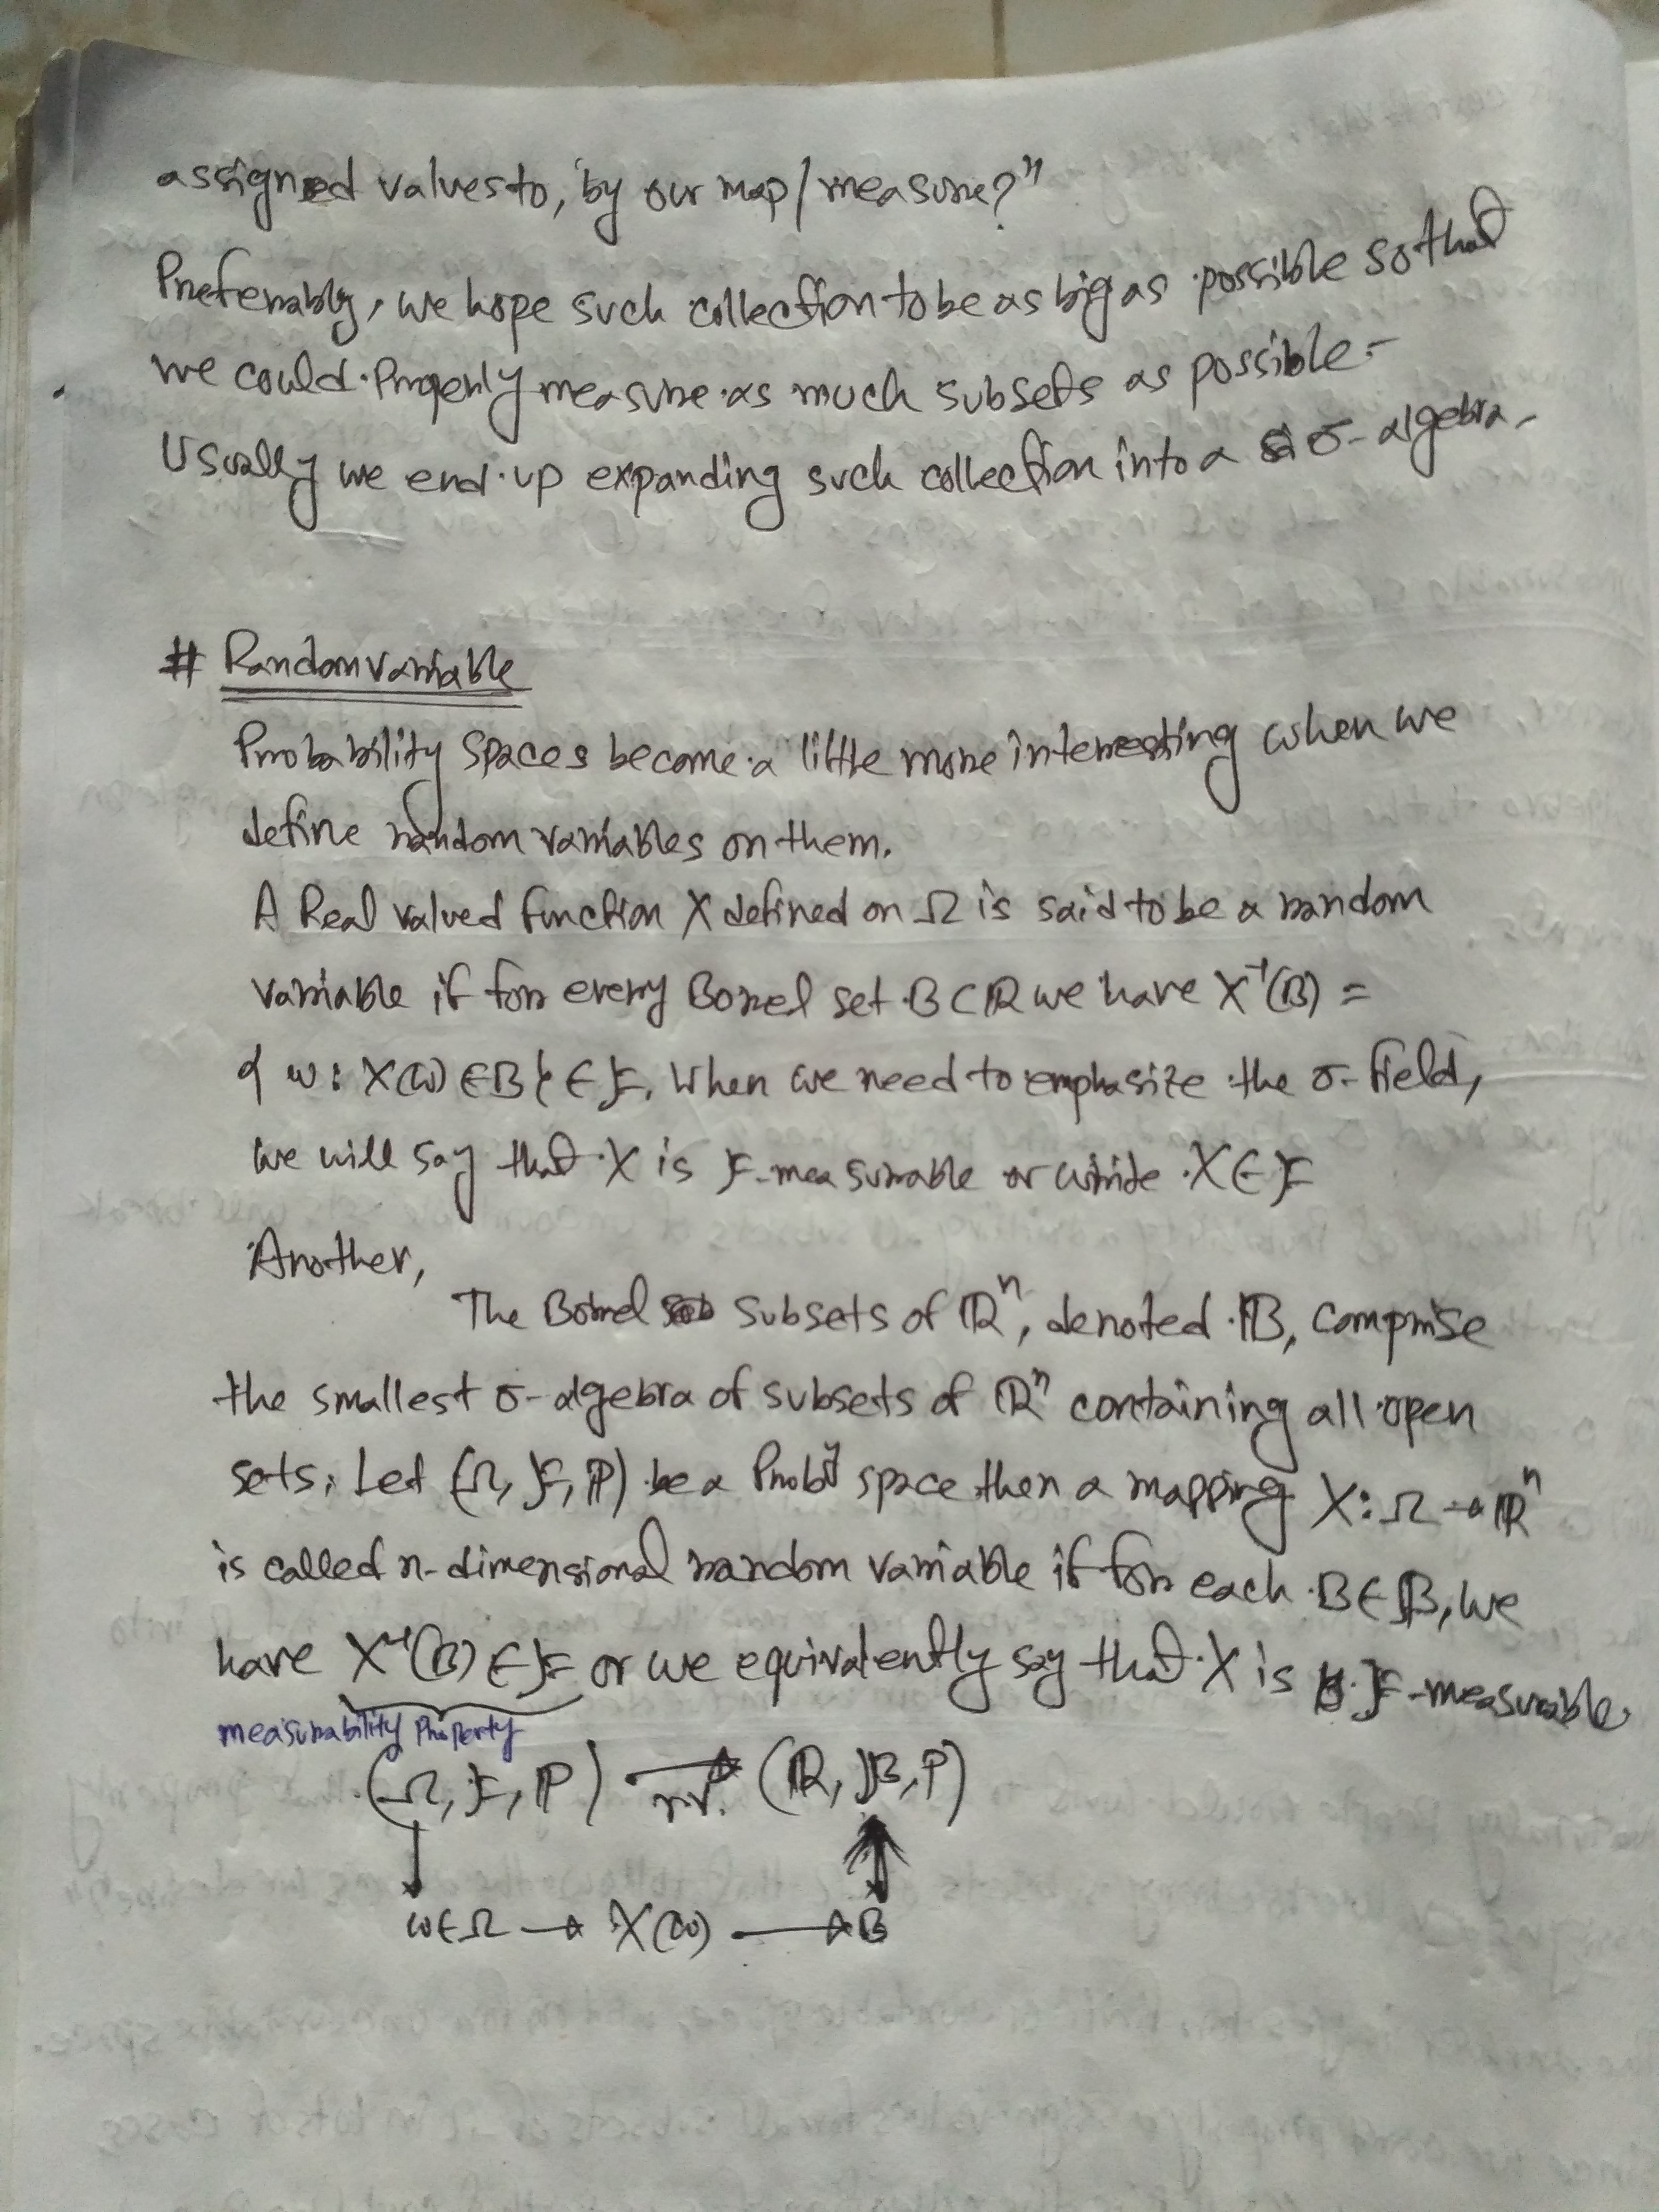 assigned values to, by our map/measure?"
Preferrably, we hope such collection to be as big as possible so that
we could properly measure as much subsets as possible.
Usually we end up expanding such collection into a σ-algebra.
# Random variable
Probability Spaces become a little more interresting when we
define random variables on them.
A Real valued function X defined on Ω is said to be a random
variable if for every Borel set B⊂ℝ we have X⁻¹(B) =
{ω: X(ω) ∈ B} ∈ F. When we need to emphasize the σ-field,
we will say that X is F-measurable or write X ∈ F
Another,
The Borel subsets of ℝⁿ, denoted 𝔹, comprise
the smallest σ-algebra of subsets of ℝⁿ containing all open
sets. Let (Ω, F, ℙ) be a Probʸ space then a mapping X: Ω → ℝⁿ
is called n-dimensional random variable if for each B ∈ 𝔹, we
have X⁻¹(B) ∈ F or we equivalently say that X is F-measurable.
measurability Property
(Ω, F, ℙ) → r.v. (ℝ, 𝔹, P)
ω∈Ω → X(ω) → B